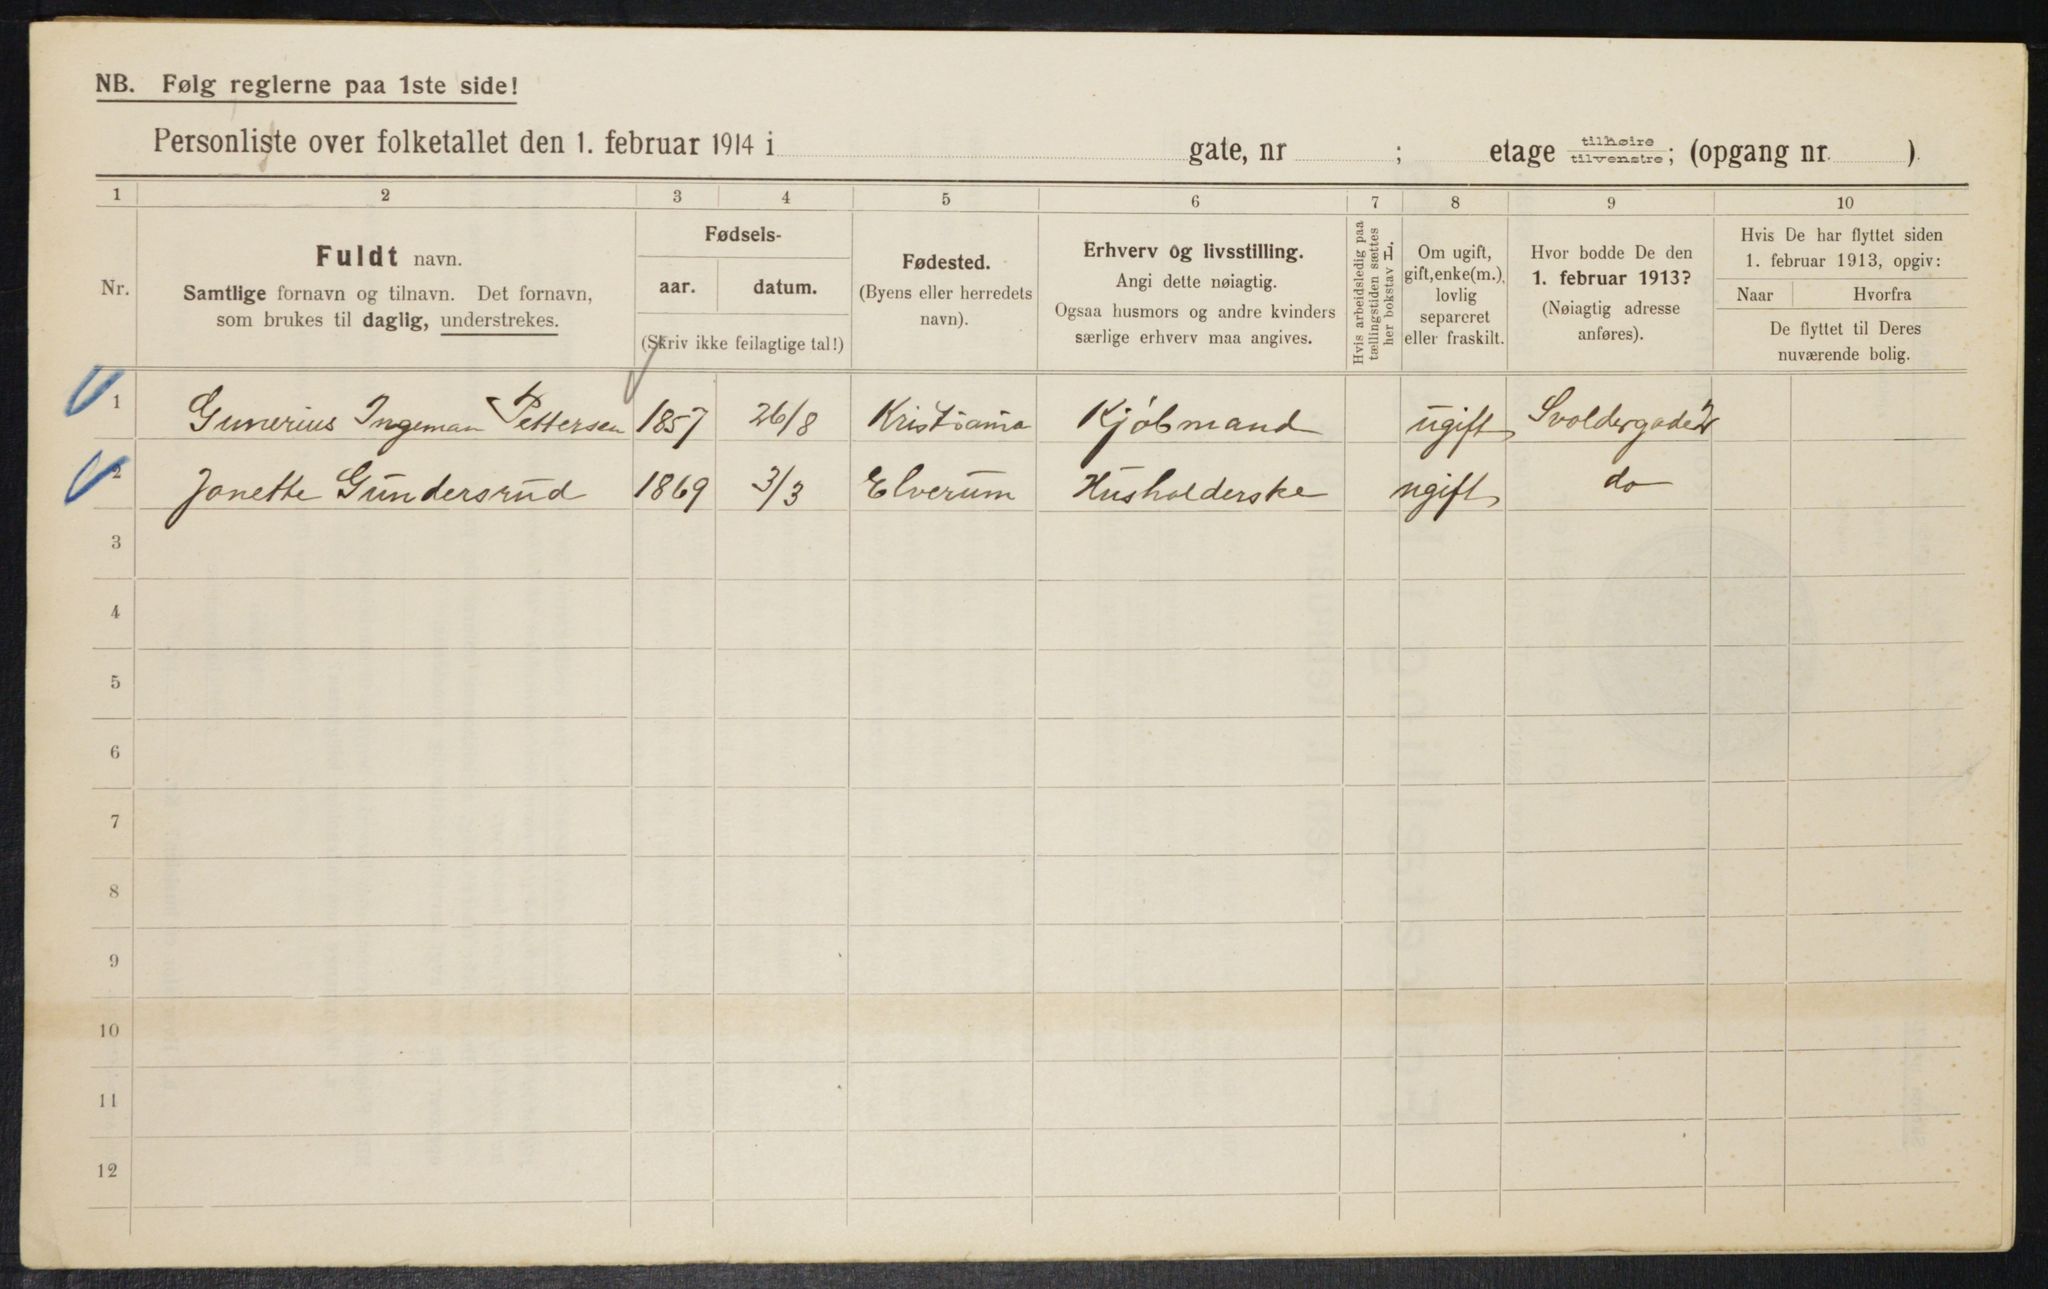 NB. Følg reglerne paa 1ste side!
Personliste over folketallet den 1. februar 1914 i gate, nr ; etage tilhøire tilvenstre; (opgang nr. ).
1 2 3 4 5 6 7 8 9 10
Nr.
Fuldt navn.
Samtlige fornavn og tilnavn. Det fornavn,
som brukes til daglig, understrekes.
Fødsels-
aar. datum.
(Skriv ikke feilagtige tal!)
Fødested.
(Byens eller herredets
navn).
Erhverv og livsstilling.
Angi dette nøiagtig.
Ogsaa husmors og andre kvinders
særlige erhverv maa angives.
Hvis arbeidsledig paa
tællingstiden sættes
her bokstav L.
Om ugift,
gift, enke(m.),
lovlig
separeret
eller fraskilt.
Hvor bodde De den
1. februar 1913?
(Nøiagtig adresse
anføres).
Hvis De har flyttet siden
1. februar 1913, opgiv:
Naar Hvorfra
De flyttet til Deres
nuværende bolig.
1 Gunerius Ingeman Pettersen 1857 26/8 Kristiania Kjøbmand ugift Svoldergade
2 Janette Gundersrud 1869 3/3 Elverum Husholderske ugift do
3
4
5
6
7
8
9
10
11
12